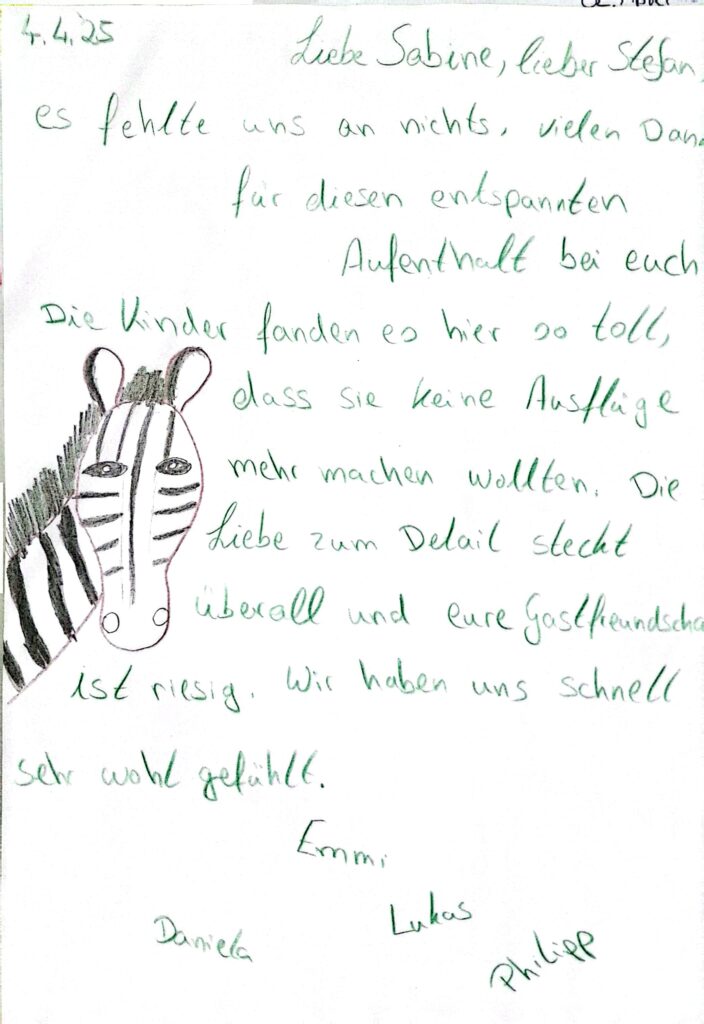 4.4.25
Liebe Sabine, lieber Stefan,
es fehlte uns an nichts, vielen Dan
für diesen entspannten
Aufenthalt bei euch
Die Kinder fanden es hier so toll,
dass sie keine Ausflüge
mehr machen wollten. Die
Liebe zum Detail steckt
überall und eure Gastfreundscha
ist riesig. Wir haben uns schnell
sehr wohl gefühlt.
Emmi
Lukas
Daniela
Philipp